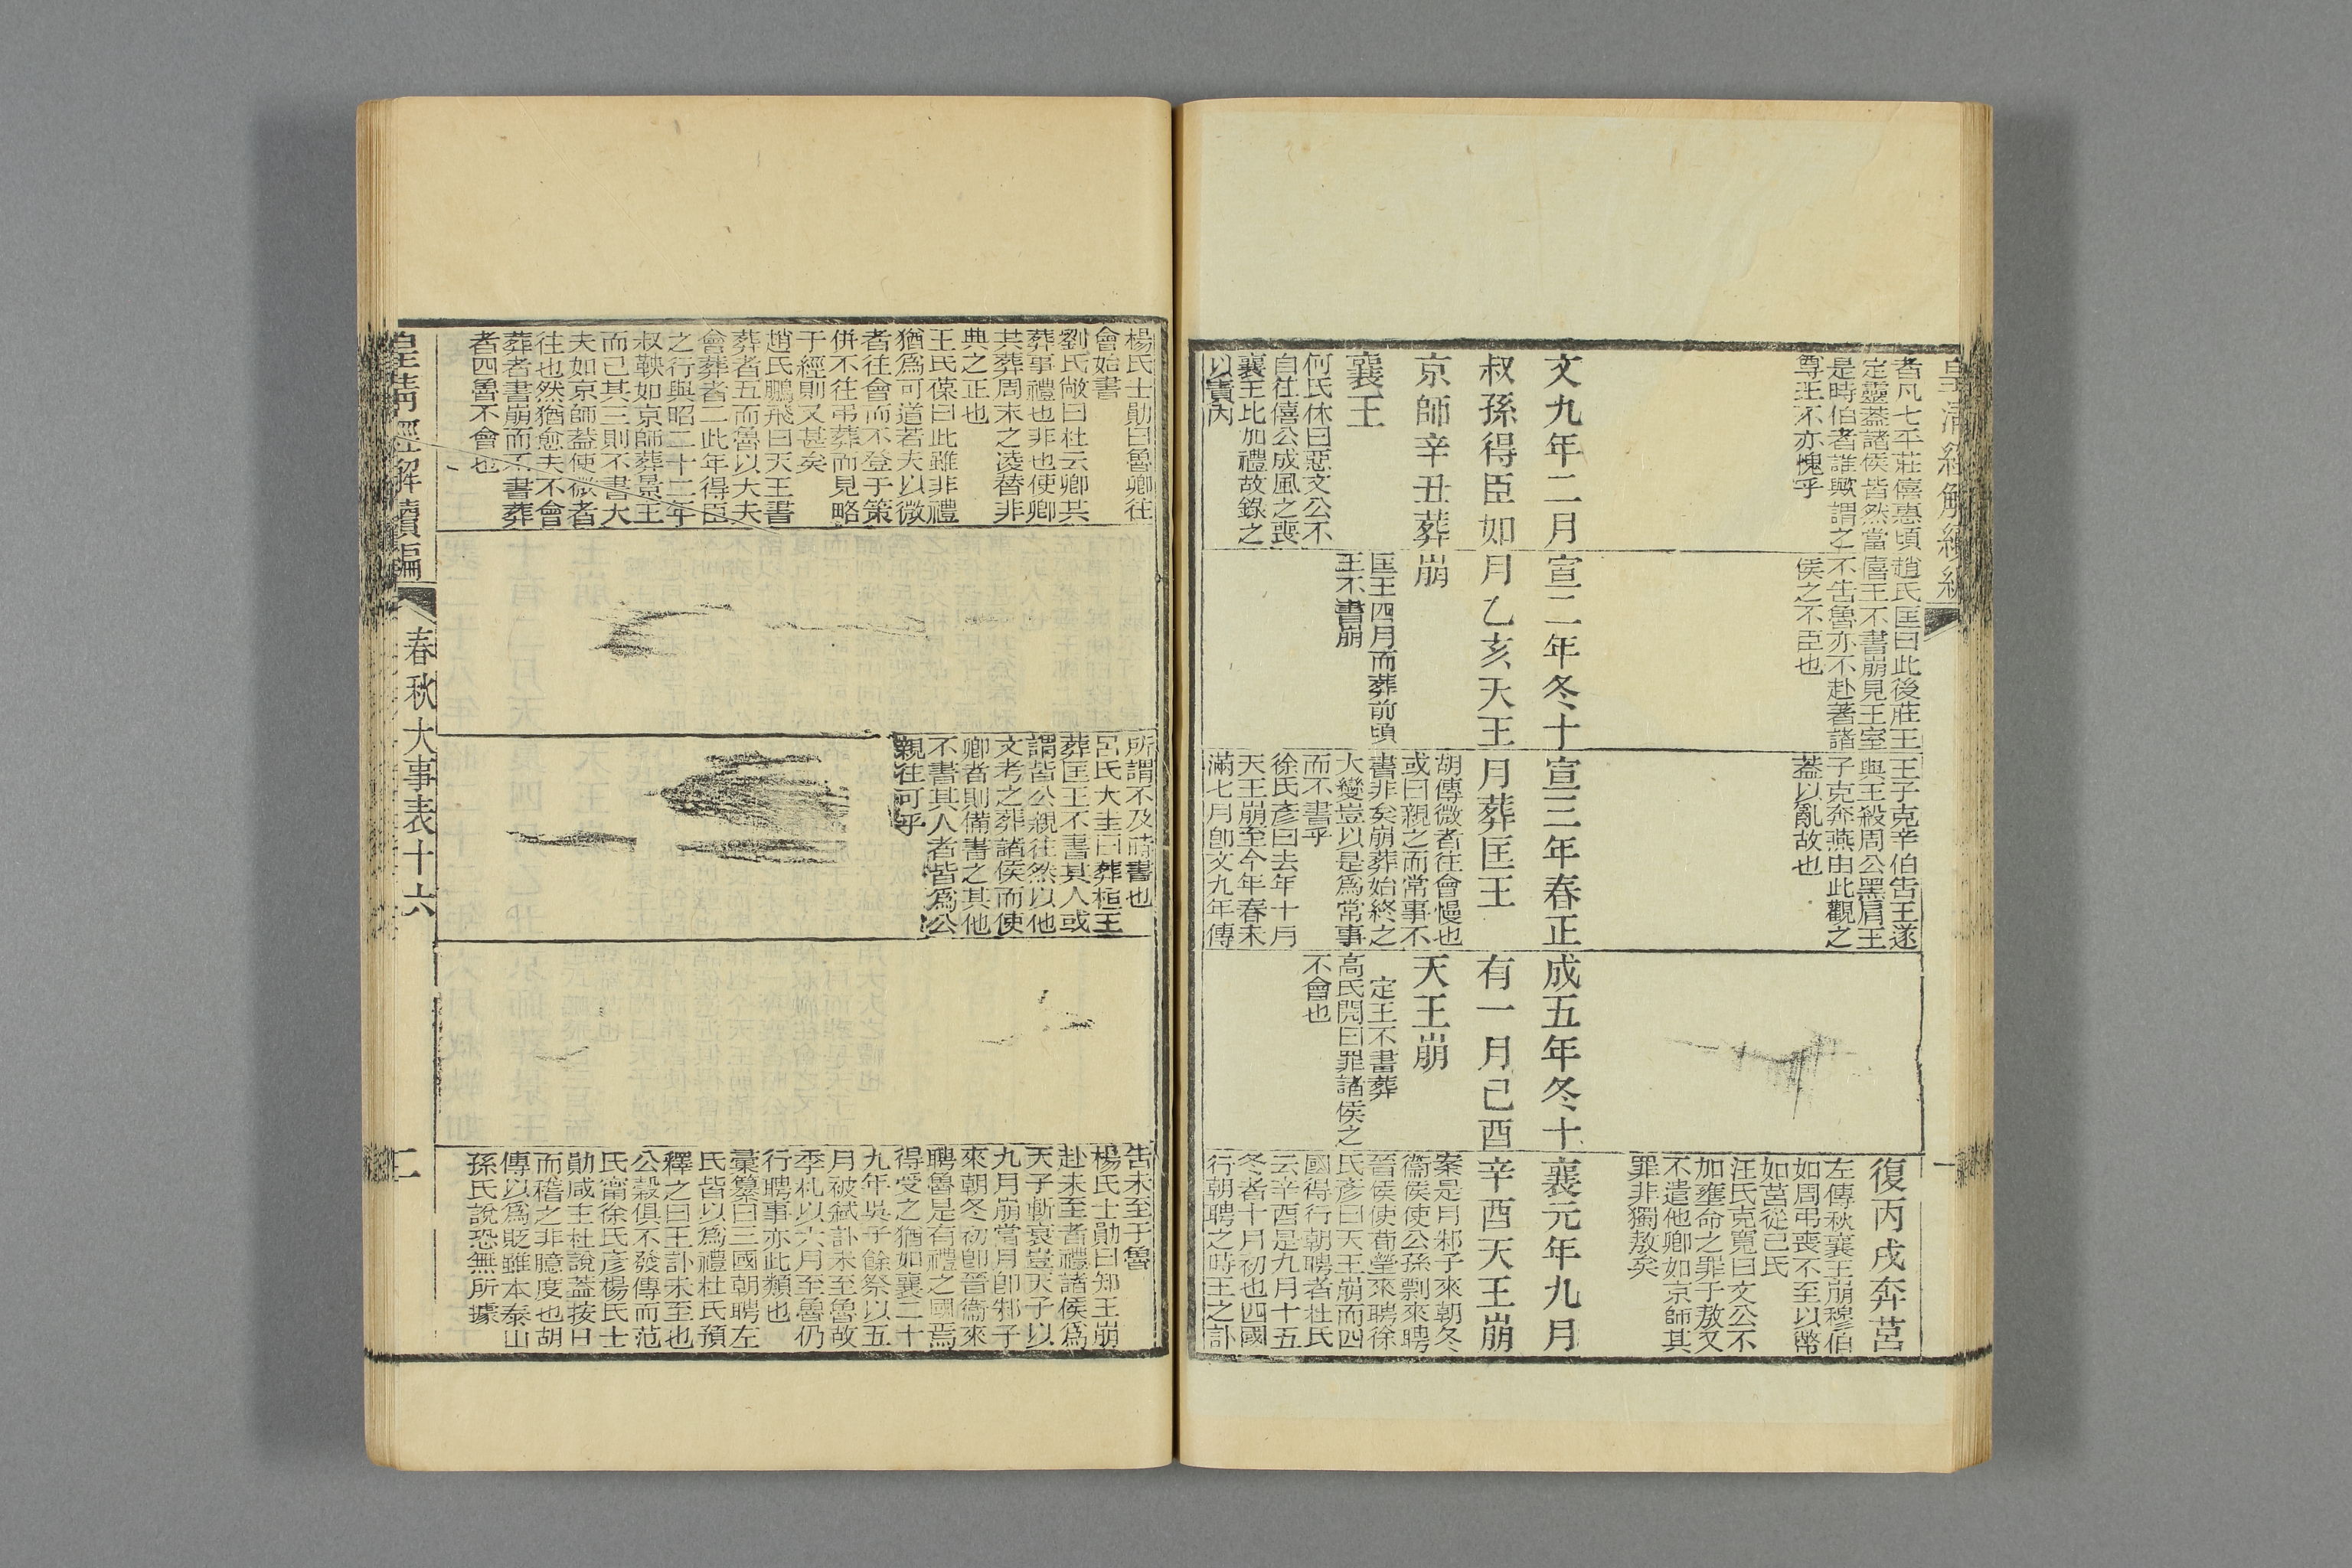 皇清經解續編
者凡七平莊僖惠頃
定靈葢諸侯皆然當
是時伯者誰歟謂之
尊王不亦愧乎
趙氏匡曰此後莊王
僖王不書崩見王室
不告魯亦不赴著諸
侯之不臣也
王子克辛伯告王遂
與王殺周公黑肩王
子克奔燕由此觀之
葢以亂故也
復丙戌奔莒
左傳秋襄王崩穆伯
如周弔喪不至以幣
如莒從己氏
汪氏克寬曰文公不
加壅命之罪于敖又
不遣他卿如京師其
罪非獨敖矣
文九年二月
叔孫得臣如
京師辛丑葬
襄王
何氏休曰惡文公不
自往僖公成風之喪
襄王比加禮故錄之
以責內
宣二年冬十
月乙亥天王
崩
匡王四月而葬前頃
王不書崩
宣三年春正
月葬匡王
胡傳微者往會慢也
或曰親之而常事不
書非矣崩葬始終之
大變豈以是爲常事
而不書乎
徐氏彥曰去年十月
天王崩至今年春未
滿七月卽文九年傳
成五年冬十
有一月己酉
天王崩
定王不書葬
高氏閌曰罪諸侯之
不會也
襄元年九月
辛酉天王崩
案是月邾子來朝冬
衞侯使公孫剽來聘
晉侯使荀罃來聘徐
氏彥曰天王崩而四
國得行朝聘者杜氏
云辛酉是九月十五
冬者十月初也四國
行朝聘之時王之訃
楊氏士勛曰魯卿往
會始書
劉氏敞曰杜云卿共
葬事禮也非也使卿
共葬周末之凌替非
典之正也
王氏葆曰此雖非禮
猶爲可道若夫以微
者往會而不登于策
併不往弔葬而見略
于經則又甚矣
趙氏鵬飛曰天王書
葬者五而魯以大夫
會葬者二此年得臣
之行與昭二十二年
叔鞅如京師葬景王
而已其三則不書大
夫如京師葢使微者
往也然猶愈夫不會
葬者書崩而不書葬
者四魯不會也
所謂不及時書也
呂氏大圭曰葬桓王
葬匡王不書其人或
謂皆公親往然以他
文考之葬諸侯而使
卿者則備書之其他
不書其人者皆爲公
親往可乎
告未至于魯
楊氏士勛曰知王崩
赴未至者禮諸侯爲
天子斬衰豈天子以
九月崩當月卽邾子
來朝冬初卽晉衞來
聘魯是有禮之國焉
得受之猶如襄二十
九年吳子餘祭以五
月被弒訃未至魯故
季札以六月至魯仍
行聘事亦此類也
彙纂曰三國朝聘左
氏皆以爲禮杜氏預
釋之曰王訃未至也
公穀俱不發傳而范
氏甯徐氏彥楊氏士
勛咸主杜說葢按日
而稽之非臆度也胡
傳以爲貶雖本泰山
孫氏說恐無所據
皇清經解續編
春秋大事表十六
二